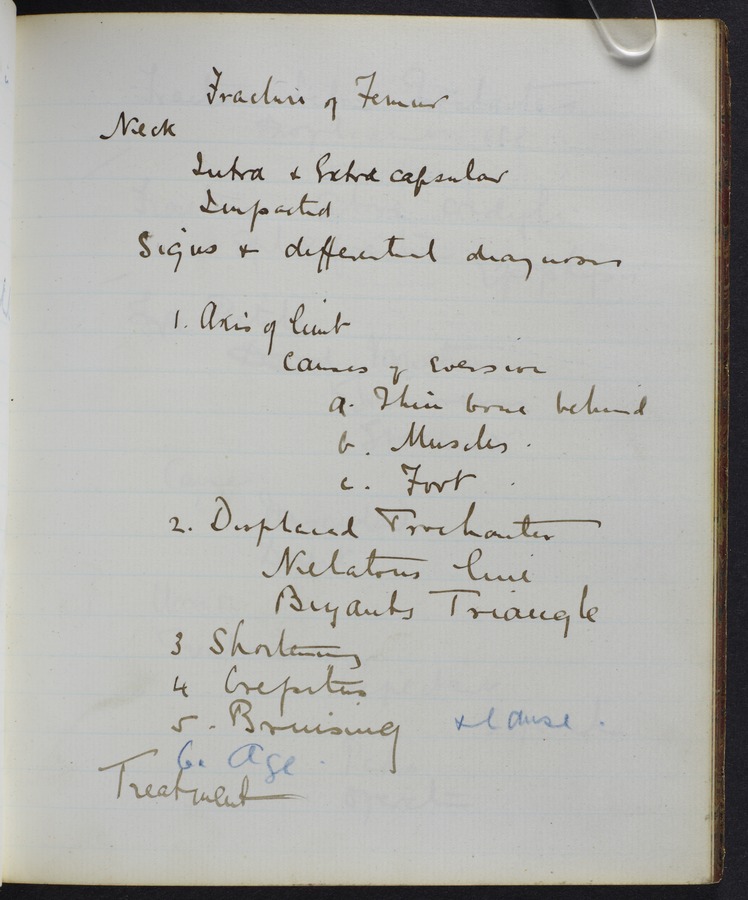 Fracture of Femur
Neck
Intra & Extra capsular
Impacted
Signs & differential diagnosis
1. Axis of limb
Causes of Eversion
a. Thin bone behind
b. Muscles.
c. Foot.
2. Displaced Trochanter
Nelatons line
Bryants Triangle
3 Shortening
4 Crepitus
5. Bruising & cause.
6. Age.
Treatment